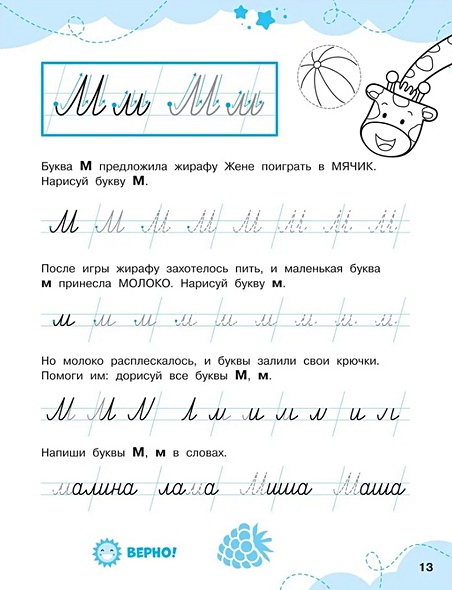 М м М м
Буква М предложила жирафу Жене поиграть в МЯЧИК.
Нарисуй букву М.
М М М М М М М М
После игры жирафу захотелось пить, и маленькая буква
м принесла МОЛОКО. Нарисуй букву м.
м м м м м м м м м
Но молоко расплескалось, и буквы залили свои крючки.
Помоги им: дорисуй все буквы М, м.
Напиши буквы М, м в словах.
малина лама Миша Маша
ВЕРНО!
13